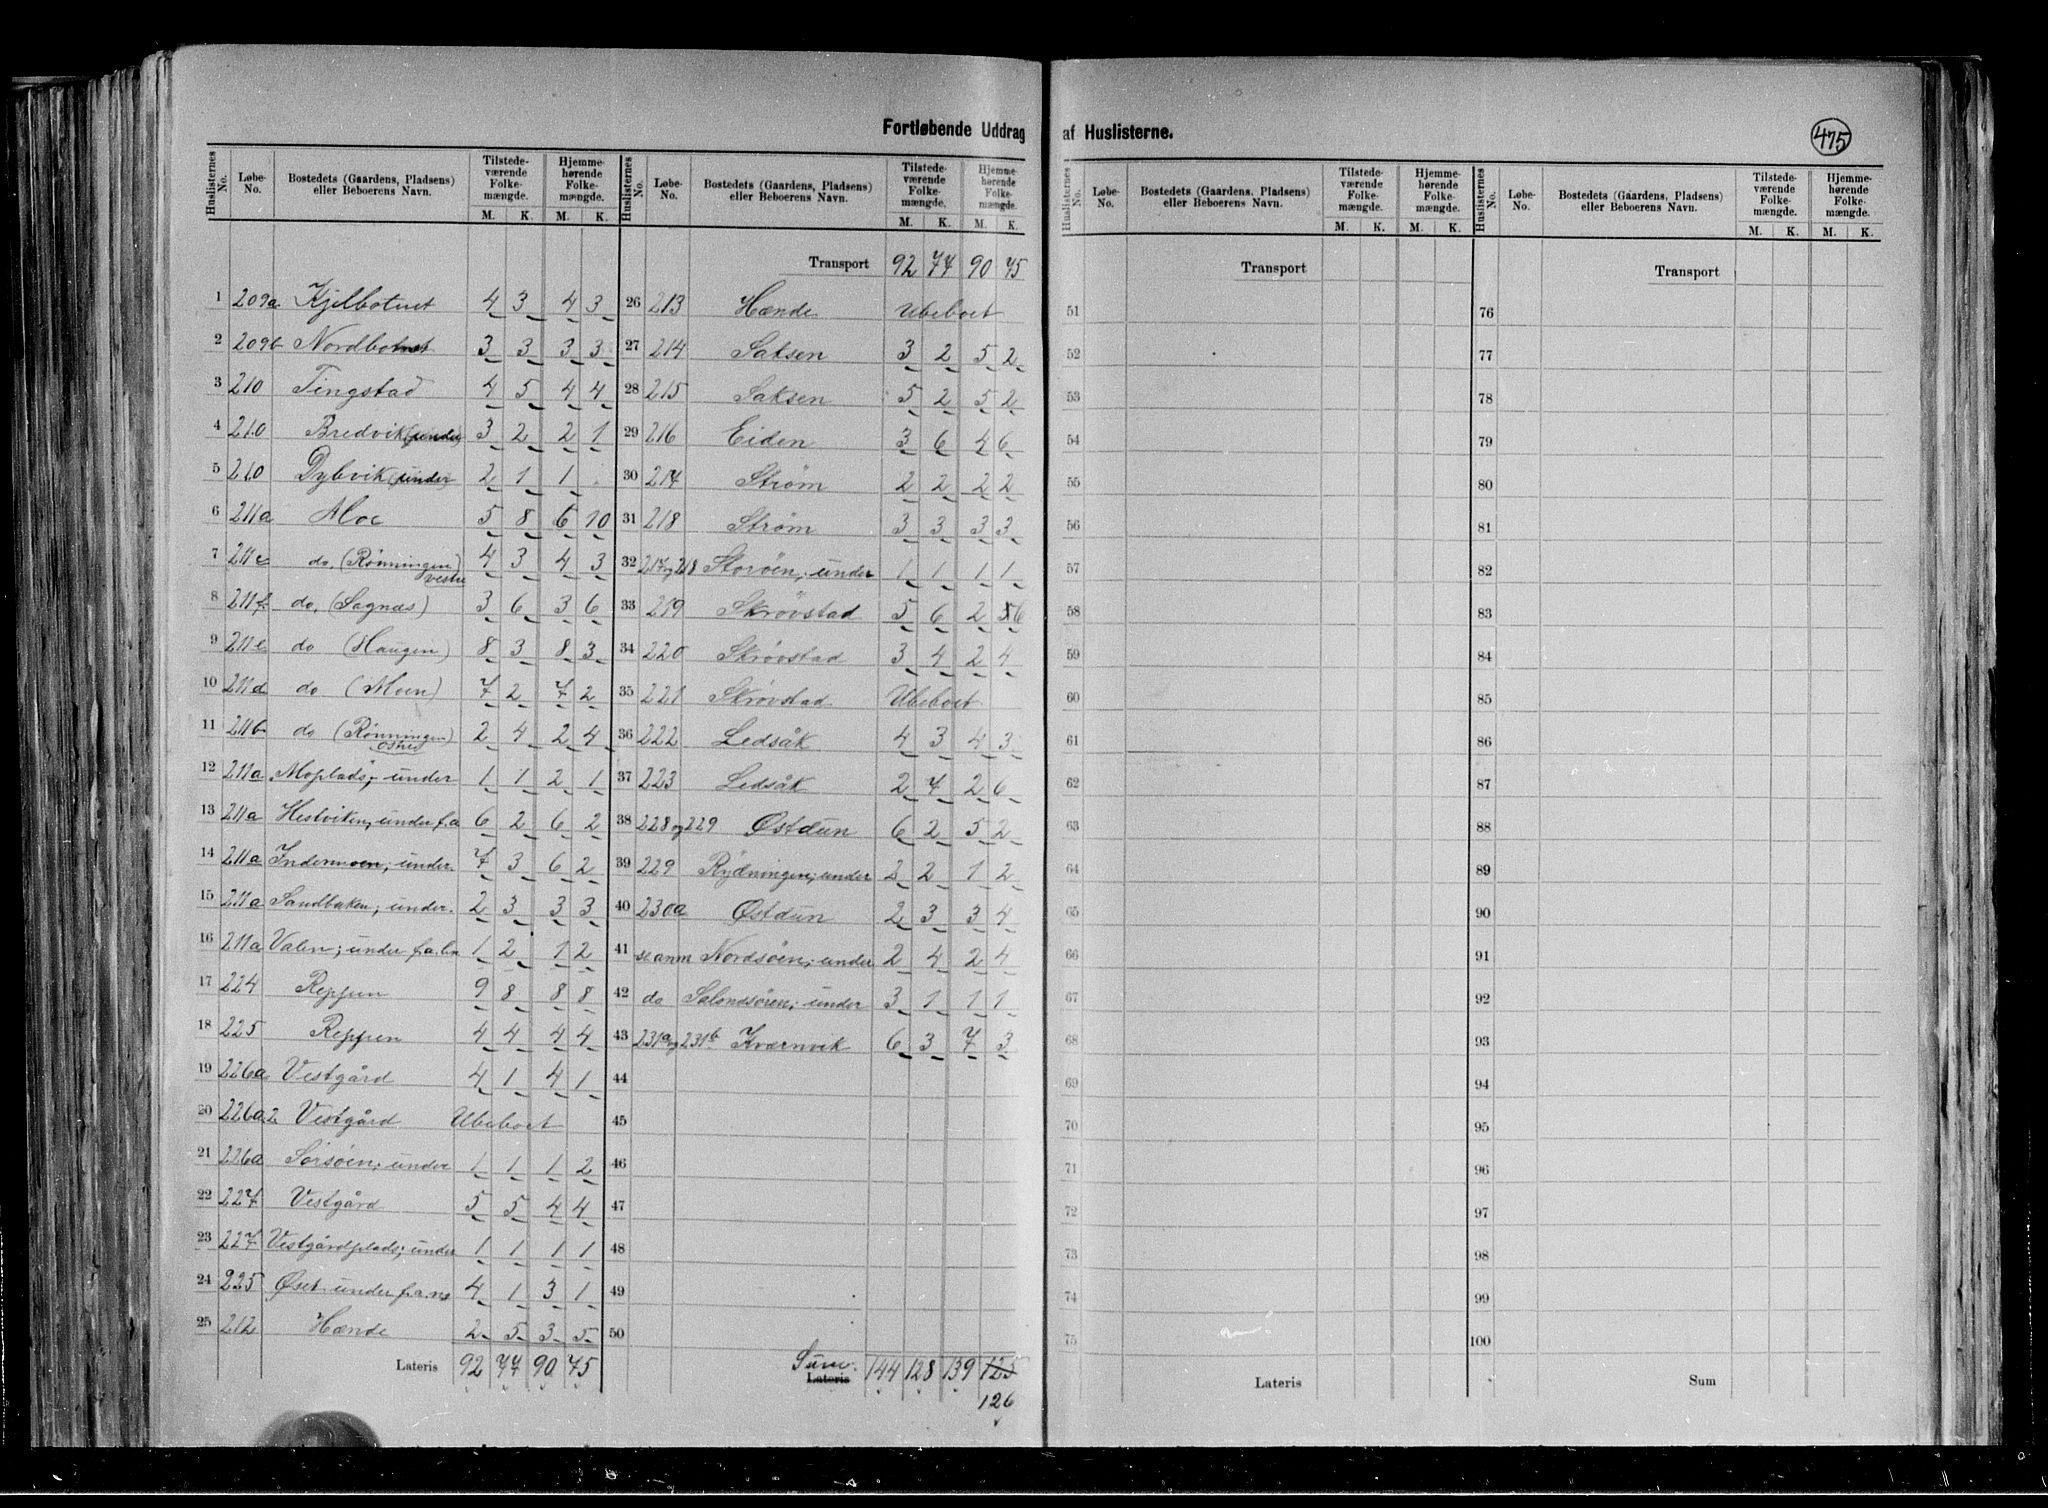 Fortløbende Uddrag af Huslisterne.
475
Huslisternes No. Løbe-No. Bostedets (Gaardens, Pladsens) eller Beboerens Navn. Tilstedeværende Folkemængde. M. K. Hjemmehørende Folkemængde. M. K.
1 209a Kjelbotnet 4 3 4 3
2 209b Nordbotnet 3 3 3 3
3 210 Tingstad 4 5 4 4
4 210 Bredvik (under 3 2 2 1
5 210 Dybvik (under 2 1 1
6 211a Moe 5 8 6 10
7 211c do. (Rønningen vestre 4 3 4 3
8 211f do. (Sagnæs) 3 6 3 6
9 211e do (Haugen) 8 3 8 3
10 211d do (Moen) 7 2 7 2
11 211b do (Rønningen) østre 2 4 2 4
12 211a Moplads; under 1 1 2 1
13 211a Hestviken; under f.a 6 2 6 2
14 211a Indermoen; under. 7 3 6 2
15 211a Sandbaken; under. 2 3 3 3
16 211a Valen; under f.a. 1 2 1 2
17 224 Reppen 9 8 8 8
18 225 Reppen 4 4 4 4
19 226a Vestgård 4 1 4 1
20 226a2 Vestgård Ubeboet
21 226a Sørsøen; under 1 1 1 2
22 227 Vestgård 5 5 4 4
23 227 Vestgårdplads; under 1 1 1 1
24 225 Øset under f.a. 4 1 3 1
25 212 Hænde 2 5 3 5
Lateris 92 77 90 75
Huslisternes No. Løbe-No. Bostedets (Gaardens, Pladsens) eller Beboerens Navn. Tilstedeværende Folkemængde. M. K. Hjemmehørende Folkemængde. M. K.
Transport 92 77 90 75
26 213 Hænde Ubeboet
27 214 Saksen 3 2 5 2
28 215 Saksen 5 2 5 2
29 216 Eiden 3 6 4 6
30 217 Strøm 2 2 2 2
31 218 Strøm 3 3 3 3
32 217 og 218 Storøen; under 1 1 1 1
33 219 Skrøvstad 5 6 2 5 6
34 220 Skrøvstad 3 4 2 4
35 221 Skrøvstad Ubeboet
36 222 Ledsåk 4 3 4 3
37 223 Ledsåk 2 7 2 6
38 228 og 229 Østdun 6 2 5 2
39 229 Rydningen; under 2 2 1 2
40 230a Østdun 2 3 3 4
41 se anm Nordsøen; under 2 4 2 4
42 do Salondsøren; under 3 1 1 1
43 231a og 231b Kværnvik 6 3 7 3
44
45
46
47
48
49
50
Sum. Lateris 144 128 139 125
126
Huslisternes No. Løbe-No. Bostedets (Gaardens, Pladsens) eller Beboerens Navn. Tilstedeværende Folkemængde. M. K. Hjemmehørende Folkemængde. M. K.
Transport
51
52
53
54
55
56
57
58
59
60
61
62
63
64
65
66
67
68
69
70
71
72
73
74
75
Lateris
Huslisternes No. Løbe-No. Bostedets (Gaardens, Pladsens) eller Beboerens Navn. Tilstedeværende Folkemængde. M. K. Hjemmehørende Folkemængde. M. K.
Transport
76
77
78
79
80
81
82
83
84
85
86
87
88
89
90
91
92
93
94
95
96
97
98
99
100
Sum